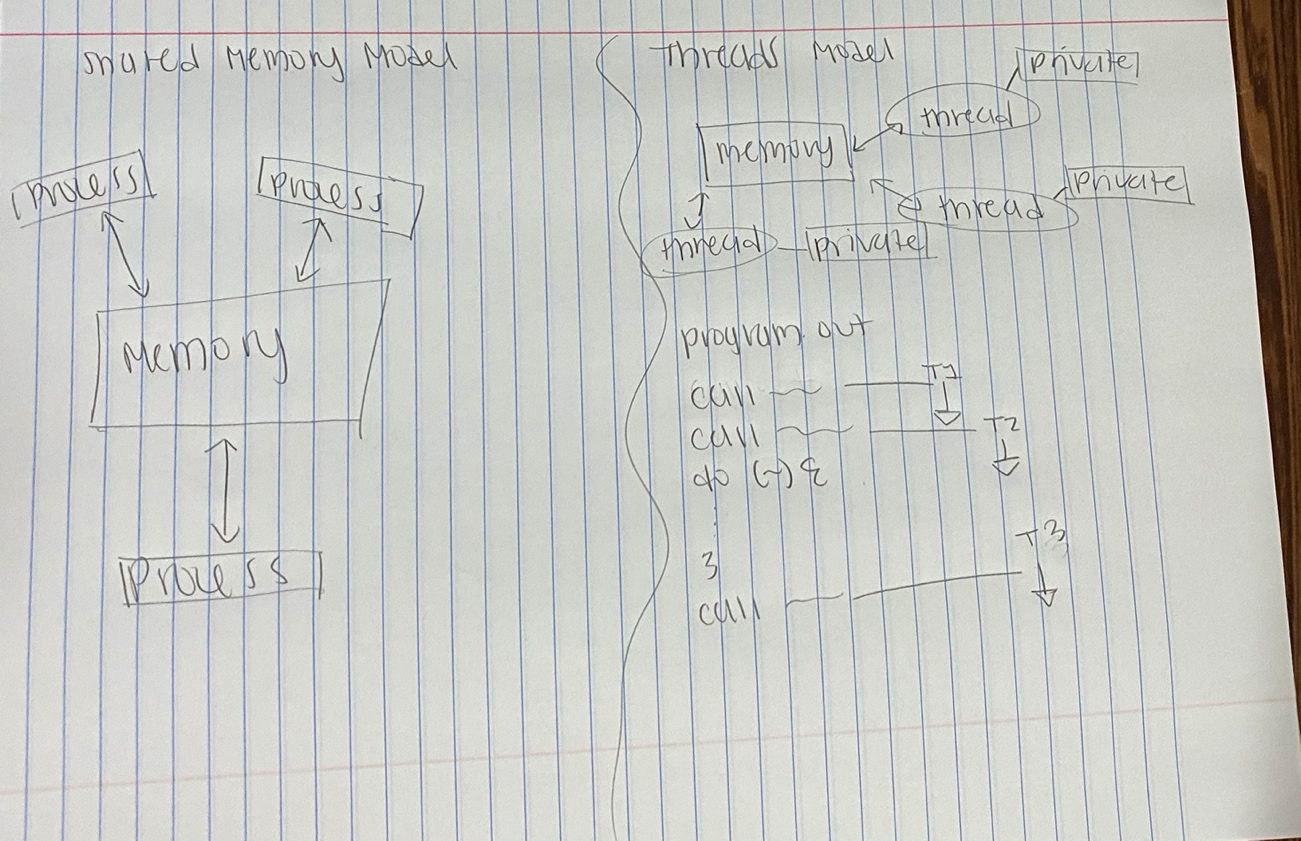 Shared Memory Model
process
process
Memory
Process
Threads Model
private
thread
memory
private
thread
thread
private
program out
call T1
call T2
do (~) {
}
T3
call